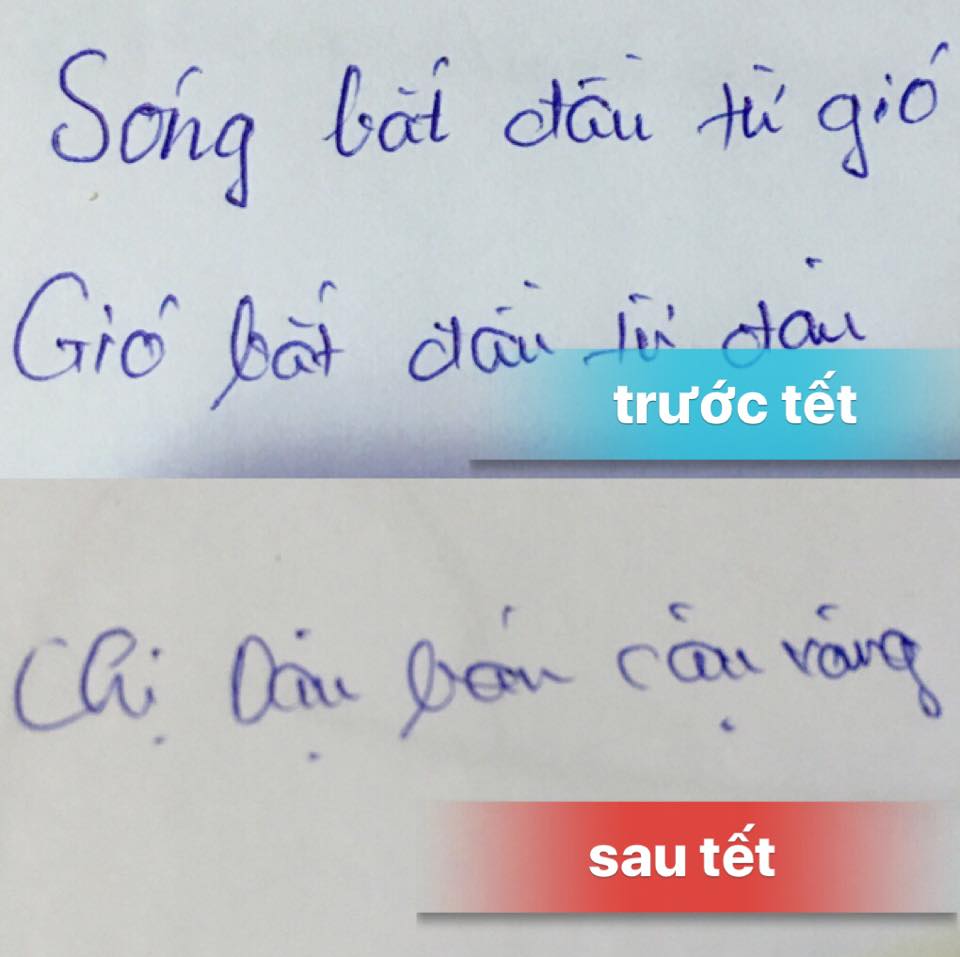 Sóng bắt đầu từ gió
Gió bắt đầu từ đâu
trước tết
Chị Dậu bán cậu vàng
sau tết